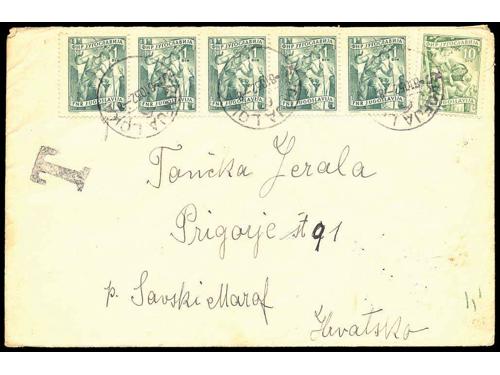 ФНР ЈУГОСЛАВИЈА 1
FNR JUGOSLAVIJA
ФНР ЈУГОСЛАВИЈА 1
FNR JUGOSLAVIJA
ФНР ЈУГОСЛАВИЈА 1
FNR JUGOSLAVIJA
ФНР ЈУГОСЛАВИЈА 1
FNR JUGOSLAVIJA
ФНР ЈУГОСЛАВИЈА 1
FNR JUGOSLAVIJA
10
T
Tančka Jerala
Prigorje št 91
p. Savski Marof
Hrvatsko